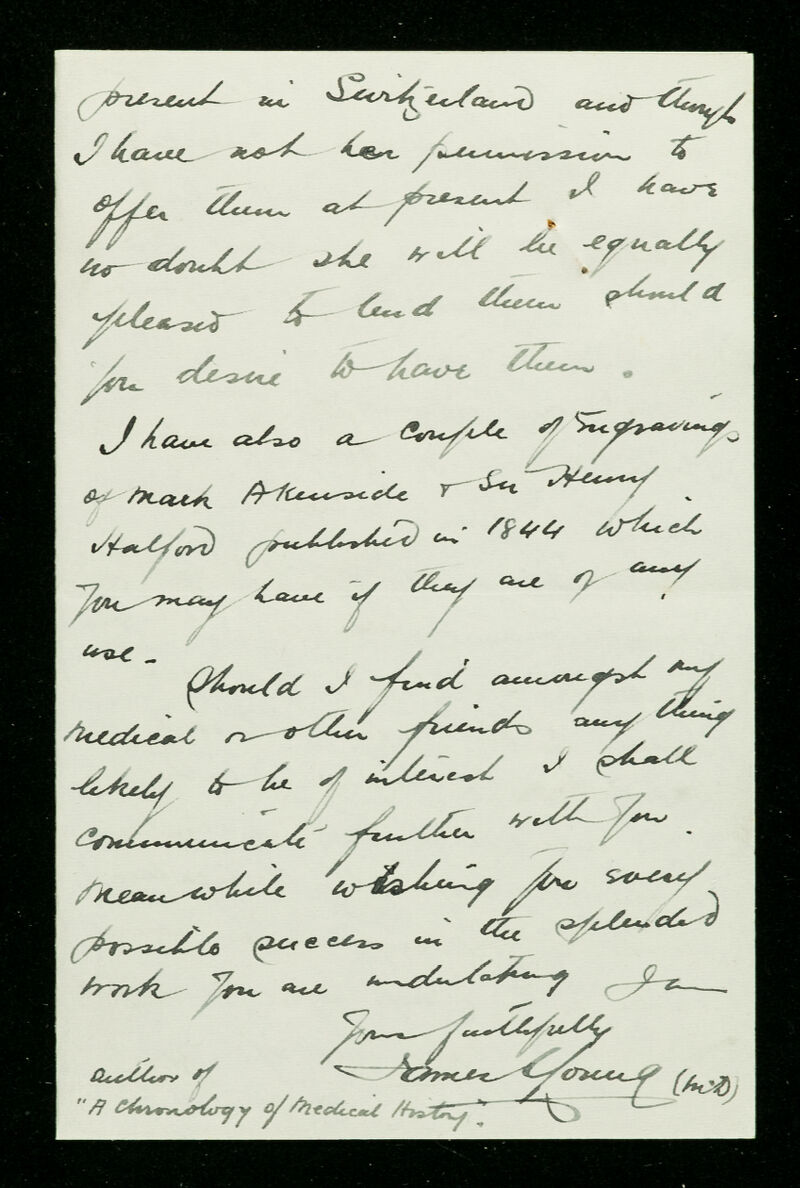 present in Switzerland and though
I have not her permission to
offer them at present I have
no doubt she will be equally
pleased to lend them should
you desire to have them.
I have also a couple of Engravings
of Mark Akenside & Sir Henry
Halford published in 1844 which
you may have if they are of any
use.
Should I find amongst my
medical or other friends any thing
likely to be of interest I shall
communicate further with you.
Meanwhile wishing you every
possible success in the splendid
work you are undertaking I am
Yours faithfully
James Young (M.D)
author of
"A Chronology of Medical History".